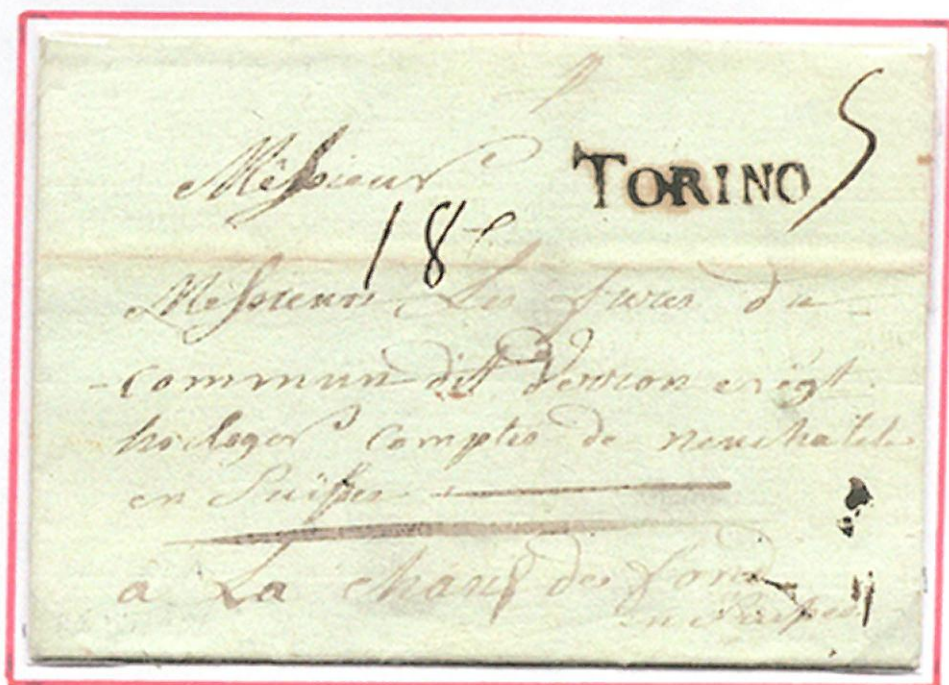 Messieurs
TORINO 5
18
Messieurs Les freres du
commun dit Verron et
horloger comptes de neuchatel
en Suisse
a La Chaux de fond
en Suisse